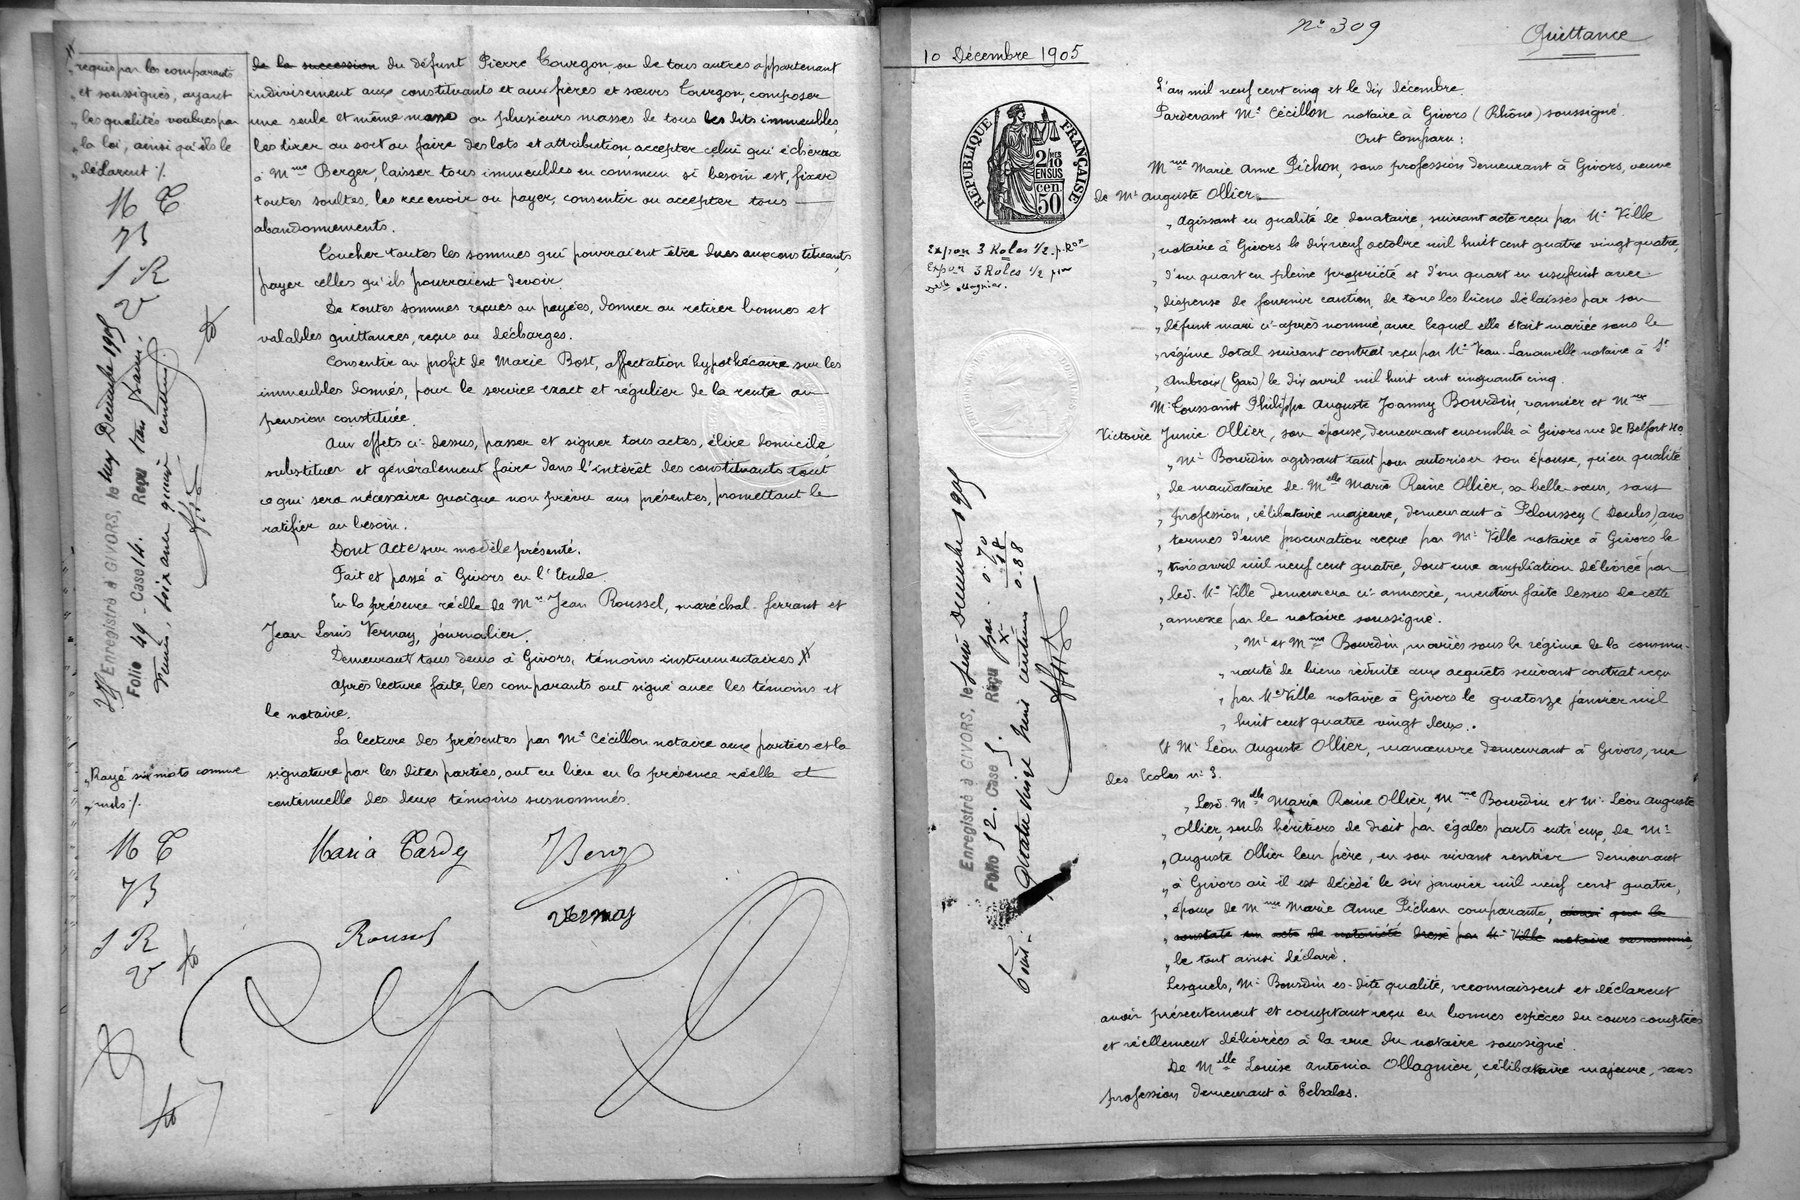 requis par les comparants
et soussignés, ayant
les qualités voulues par
la loi, ainsi qu'ils le
déclarent ./.
M C
JB
J R
V
Enregistré à GIVORS, le dix Décembre 1905
Folio 49. Case 14. Reçu
Rayé six mots comme
nuls ./.
M C
JB
J R
V
de la succession du défunt Pierre Courgon, ou de tous autres appartenant
indivisement aux constituants et aux frères et sœurs Courgon, composer
une seule et même masse ou plusieurs masses de tous les dits immeubles,
les tirer au sort ou faire des lots et attribution, accepter celui qui écherra
à Mme Berger, laisser tous immeubles en commun si besoin est, fixer
toutes soultes, les recevoir ou payer, consentir ou accepter tous
abandonnements.
Toucher toutes les sommes qui pourraient être dues aux constituants,
payer celles qu'ils pourraient devoir.
De toutes sommes reçues ou payées, donner ou retirer bonnes et
valables quittances, reçus ou décharges.
Consentir au profit de Marie Bost, affectation hypothécaire sur les
immeubles donnés, pour le service exact et régulier de la rente ou
pension constituée.
Aux effets ci-dessus, passer et signer tous actes, élire domicile,
substituer et généralement faire dans l'intérêt des constituants tout
ce qui sera nécessaire quoique non prévu aux présentes, promettant le
ratifier au besoin.
Dont acte sur modèle présenté.
Fait et passé à Givors en l'Etude.
En la présence réelle de Mrs Jean Roussel, maréchal-ferrant et
Jean Louis Vernay, journalier.
Demeurant tous deux à Givors, témoins instrumentaires
Après lecture faite, les comparants ont signé avec les témoins et
le notaire.
La lecture des présentes par Me Cécillon notaire aux parties et la
signature par les dites parties, ont eu lieu en la présence réelle et
continuelle des deux témoins susnommés.
Maria Tardy
Roussel Vernay
No 309
Quittance
10 Décembre 1905
RÉPUBLIQUE FRANÇAISE
2/10 EN SUS
50 cen
Expon 3 Roles 1/2 p. Ron
Expon 3 Roles 1/2 pour
Enregistré à GIVORS, le Décembre 1905
Folio 52. Case 5. Reçu
0.70
18
0.88
quatre vingt huit centimes
L'an mil neuf cent cinq et le dix décembre.
Pardevant Me Cécillon notaire à Givors (Rhône) soussigné.
Ont Comparu :
Mme Marie Anne Pichon, sans profession demeurant à Givors, veuve
de Mr Auguste Ollier.
Agissant en qualité de donataire, suivant acte reçu par Me Ville
notaire à Givors le dix neuf octobre mil huit cent quatre vingt quatre,
d'un quart en pleine propriété et d'un quart en usufruit avec
dispense de fournir caution, de tous les biens délaissés par son
défunt mari ci-après nommé, avec lequel elle était mariée sous le
régime dotal suivant contrat reçu par Me Jean notaire à St
Ambroix (Gard) le dix avril mil huit cent cinquante cinq.
Mr Toussaint Philippe Auguste Joanny Bourdin, vannier et Mme
Victoire Junie Ollier, son épouse, demeurant ensemble à Givors rue de Belfort 40.
Mr Bourdin agissant tant pour autoriser son épouse, qu'en qualité
de mandataire de Melle Marie Reine Ollier, sa belle sœur, sans
profession, célibataire majeure, demeurant à Peloussey (Doubs), aux
termes d'une procuration reçue par Me Ville notaire à Givors le
trois avril mil neuf cent quatre, dont une ampliation délivrée par
led. Me Ville demeurera ci-annexée, mention faite dessus de cette
annexe par le notaire soussigné.
Mr et Mme Bourdin, mariés sous le régime de la commu-
nauté de biens réduite aux acquets suivant contrat reçu
par Me Ville notaire à Givors le quatorze janvier mil
huit cent quatre vingt deux.
Et Mr Léon Auguste Ollier, manœuvre demeurant à Givors, rue
des Ecoles no 3.
Lesd. Melle Marie Reine Ollier, Mme Bourdin et Mr Léon Auguste
Ollier seuls héritiers de droit par égales parts entr'eux, de Mr
Auguste Ollier leur père, en son vivant rentier demeurant
à Givors où il est décédé le six janvier mil neuf cent quatre,
époux de Mme Marie Anne Pichon comparante, ainsi que le
constate un acte de notoriété dressé par Me Ville notaire susnommé,
le tout ainsi déclaré.
Lesquels, Mr Bourdin es-dite qualité, reconnaissent et déclarent
avoir présentement et comptant reçu en bonnes espèces du cours comptées
et réellement délivrées à la vue du notaire soussigné.
De Melle Louise Antonia Ollagnier, célibataire majeure, sans
profession demeurant à Echalas.